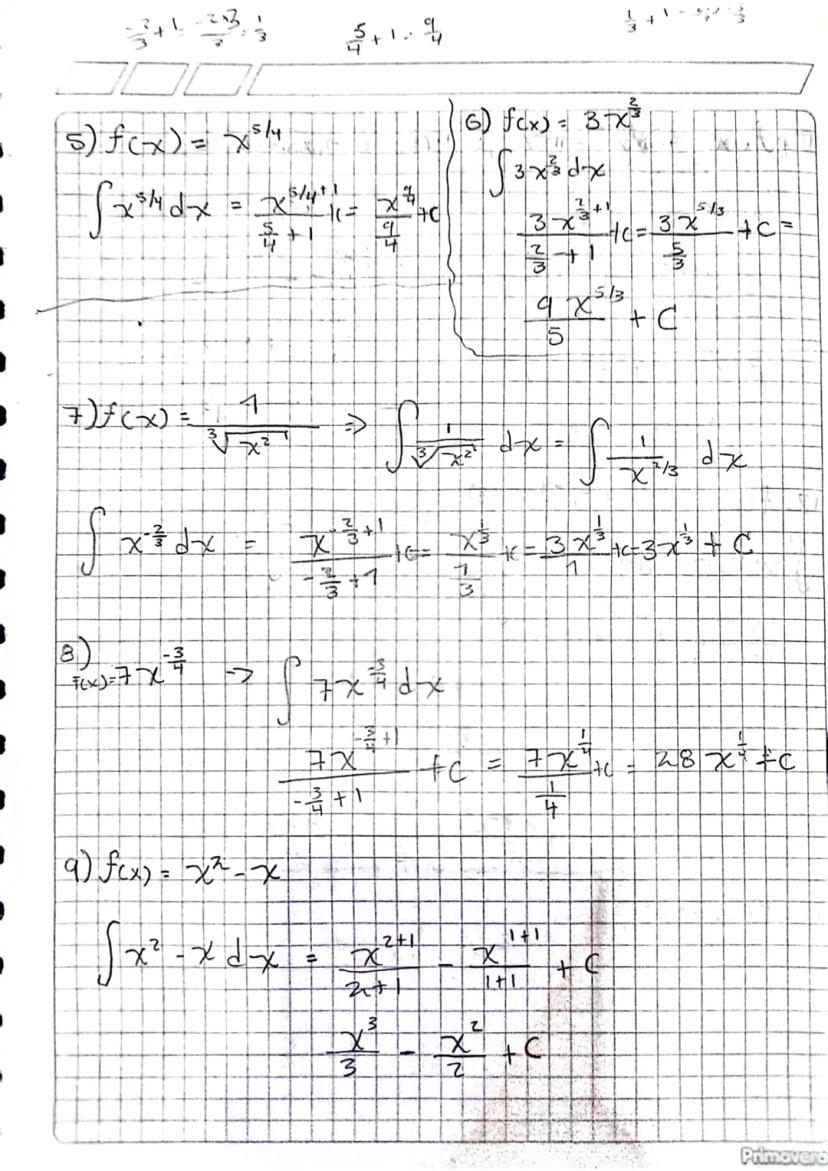 -2/3 + 1 = -2+3/3 = 1/3
5/4 + 1 = 9/4
1/3 + 1
5) f(x) = x^5/4
∫ x^5/4 dx = x^(5/4+1)/(5/4 + 1) + c = x^(9/4)/(9/4) + c
6) f(x) = 3x^2/3
∫ 3x^2/3 dx
3x^(2/3+1)/(2/3 + 1) + c = 3x^(5/3)/(5/3) + c =
9x^(5/3)/5 + C
7) f(x) = 1/∛x² => ∫ 1/∛x² dx = ∫ 1/x^(2/3) dx
∫ x^(-2/3) dx = x^(-2/3+1)/(-2/3 + 1) + c = x^(1/3)/(1/3) + c = 3x^(1/3)/1 + c = 3x^(1/3) + C
8)
f(x) = 7x^(-3/4) -> ∫ 7x^(-3/4) dx
7x^(-3/4+1)/(-3/4 + 1) + c = 7x^(1/4)/(1/4) + c = 28x^(1/4) + C
9) f(x) = x² - x
∫ x² - x dx = x^(2+1)/(2+1) - x^(1+1)/(1+1) + C
x³/3 - x²/2 + C
Primavera